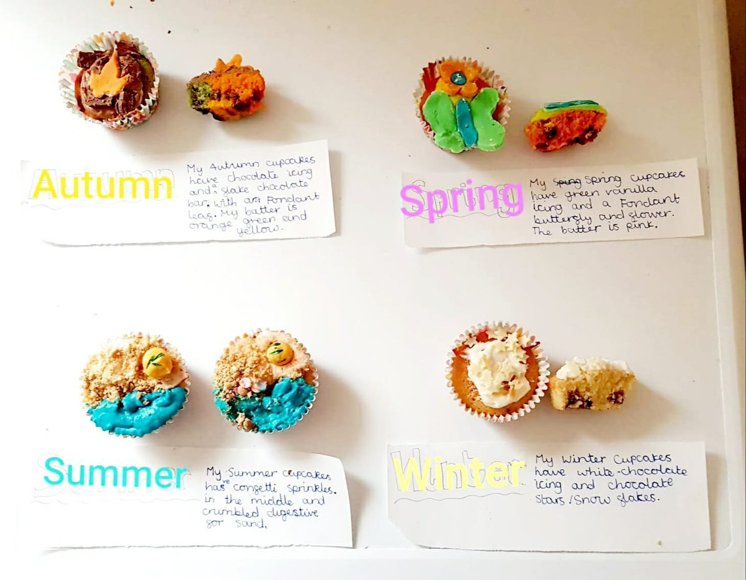 Autumn
My Autumn cupcakes
have chocolate icing
and a flake chocolate
bar. with an Fondant
leaf. My batter is
orange green and
yellow.
Spring
My Spring Spring cupcakes
have green vanilla
icing and a Fondant
butterfly and flower.
The batter is pink.
Summer
My Summer cupcakes
has confetti sprinkles
in the middle and
crumbled digestive
for sand.
Winter
My Winter Cupcakes
have white-chocolate
icing and chocolate
stars/snow flakes.